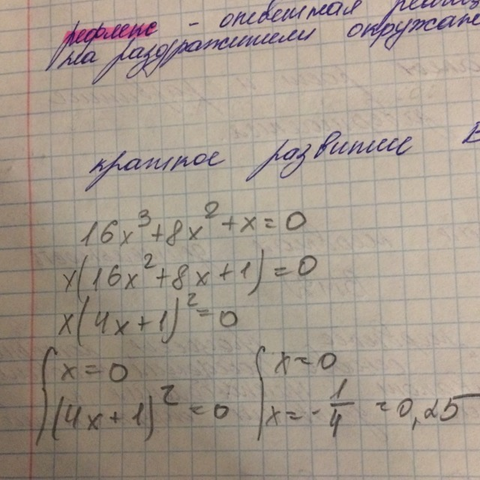 рефлекс - ответная реакц
на раздражители окружаю
краткое развитие В
16x³+8x²+x=0
x(16x²+8x+1)=0
x(4x+1)²=0
{x=0 {x=0
{(4x+1)²=0 {x=-1/4 =0,25